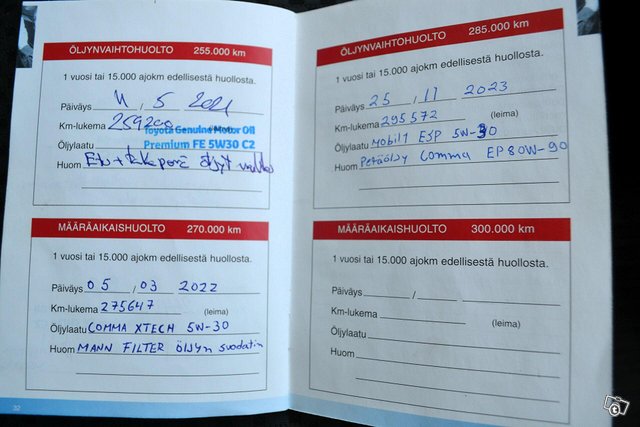 ÖLJYNVAIHTOHUOLTO 255.000 km
1 vuosi tai 15.000 ajokm edellisestä huollosta.
Päiväys 11 . 5 2021
Km-lukema 259200
Toyota Genuine Motor Oil
Öljylaatu Premium FE 5W30 C2
Huom Etu + takaperä öljyt
MÄÄRÄAIKAISHUOLTO 270.000 km
1 vuosi tai 15.000 ajokm edellisestä huollosta.
Päiväys 05 / 03 2022
Km-lukema 275647 (leima)
Öljylaatu COMMA XTECH 5W-30
Huom MANN FILTER ÖLJYN suodatin
32
ÖLJYNVAIHTOHUOLTO 285.000 km
1 vuosi tai 15.000 ajokm edellisestä huollosta.
Päiväys 25 / 11 2023
Km-lukema 295572 (leima)
Öljylaatu MOBIL1 ESP 5W-30
Huom Peräöljy COMMA EP80W-90
MÄÄRÄAIKAISHUOLTO 300.000 km
1 vuosi tai 15.000 ajokm edellisestä huollosta.
Päiväys /
Km-lukema (leima)
Öljylaatu
Huom